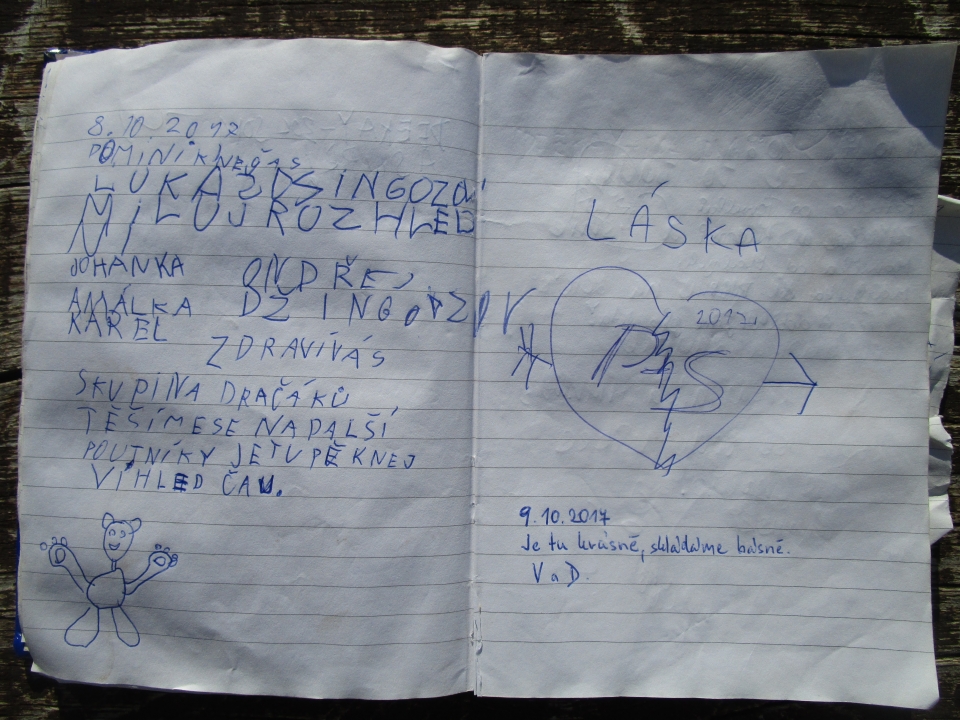 8.10.2017
DOMINIK NEČAS
LUKÁŠ DŽINGOZOV
MILUJ ROZHLED
NI
JOHANKA
ONDŘEJ
AMÁLKA
DŽINGOZOV
KAREL
ZDRAVÍ VÁS
SKUPINA DRAČÁKŮ
TĚŠÍMESE NA DALŠÍ
POUTNÍKY JE TU PĚKNEJ
VÍHLED ČAU.
LÁSKA
2017
P S
9.10.2017
Je tu krásně, skládáme básně.
V a D.